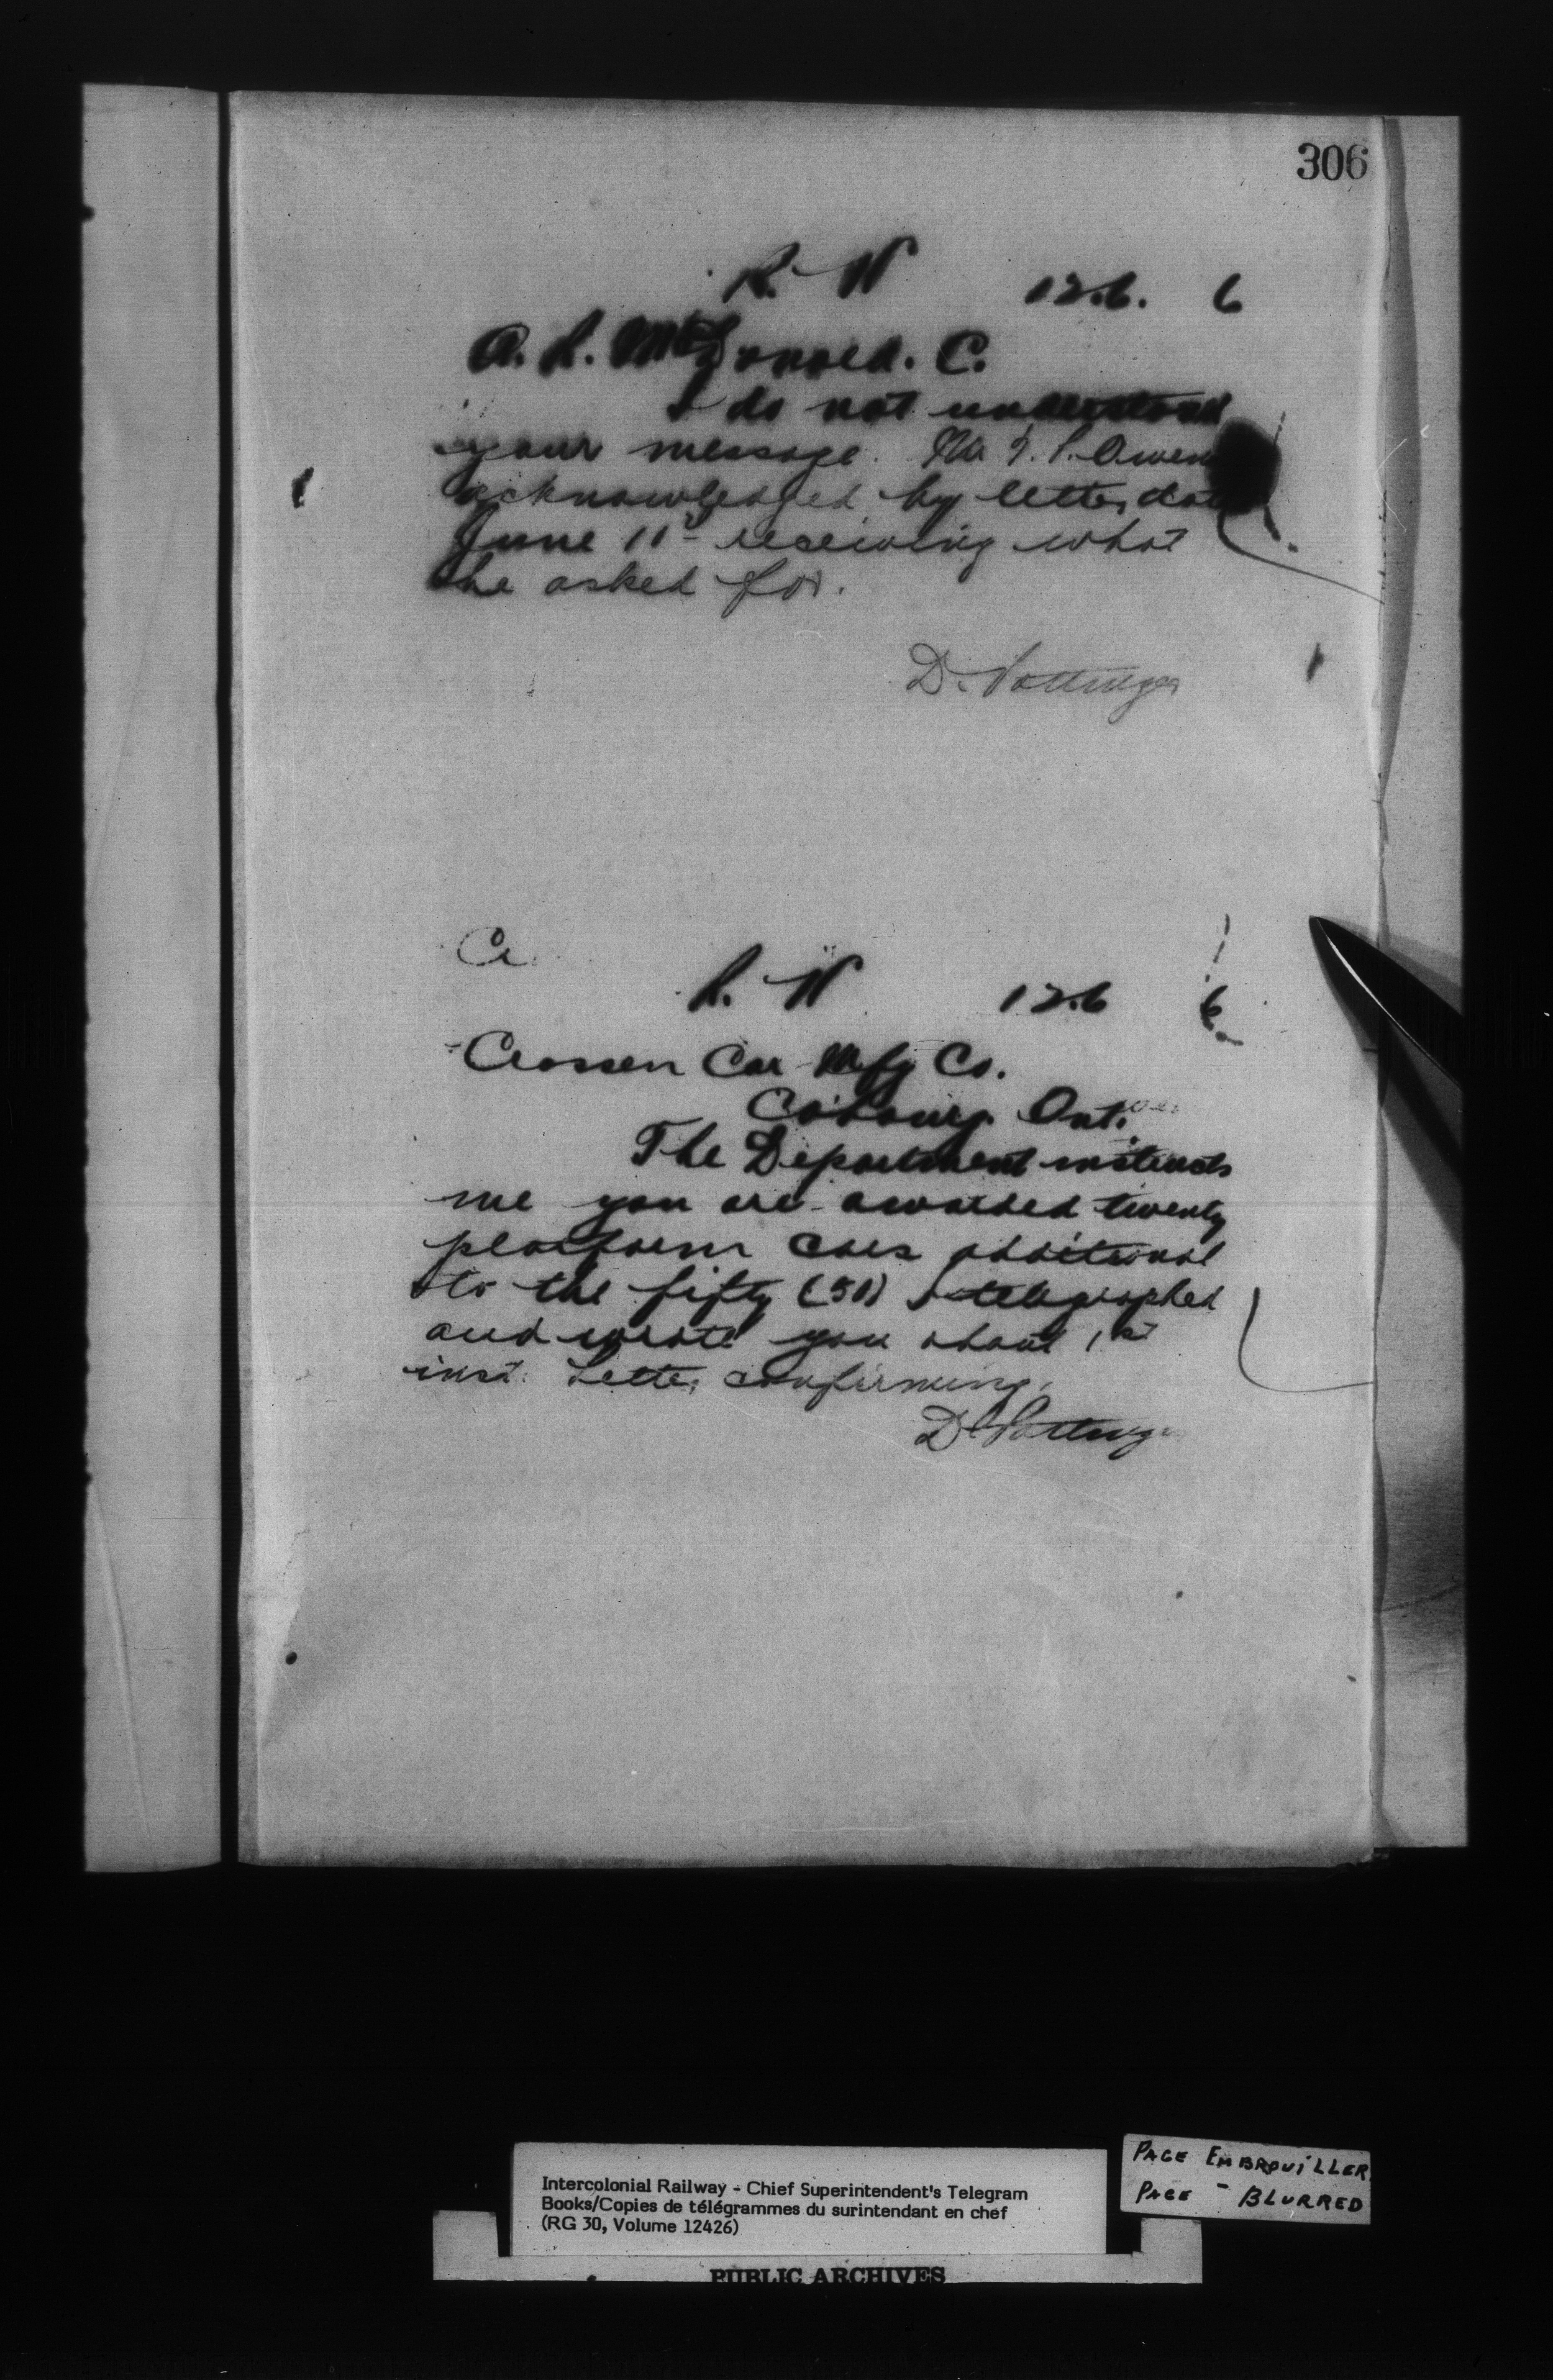 306
R. W 12.6. 6
A. R. McDonald. C.
I do not understand
your message. Mr. T. P. Owen
acknowledged by letter, dat
June 11th receiving what
he asked for.
D. Pottinger
C
R. W 12.6 6
Crossen Car Mfg Co.
Cobourg. Ont.
The Department instructs
me you are awarded twenty
platform cars additional
to the fifty (50) I telegraphed
and wrote you about 1st
inst. Letter confirming.
D. Pottinger
Intercolonial Railway - Chief Superintendent's Telegram
Books/Copies de télégrammes du surintendant en chef
(RG 30, Volume 12426)
PUBLIC ARCHIVES
PAGE EMBROUILLER
PAGE - BLURRED